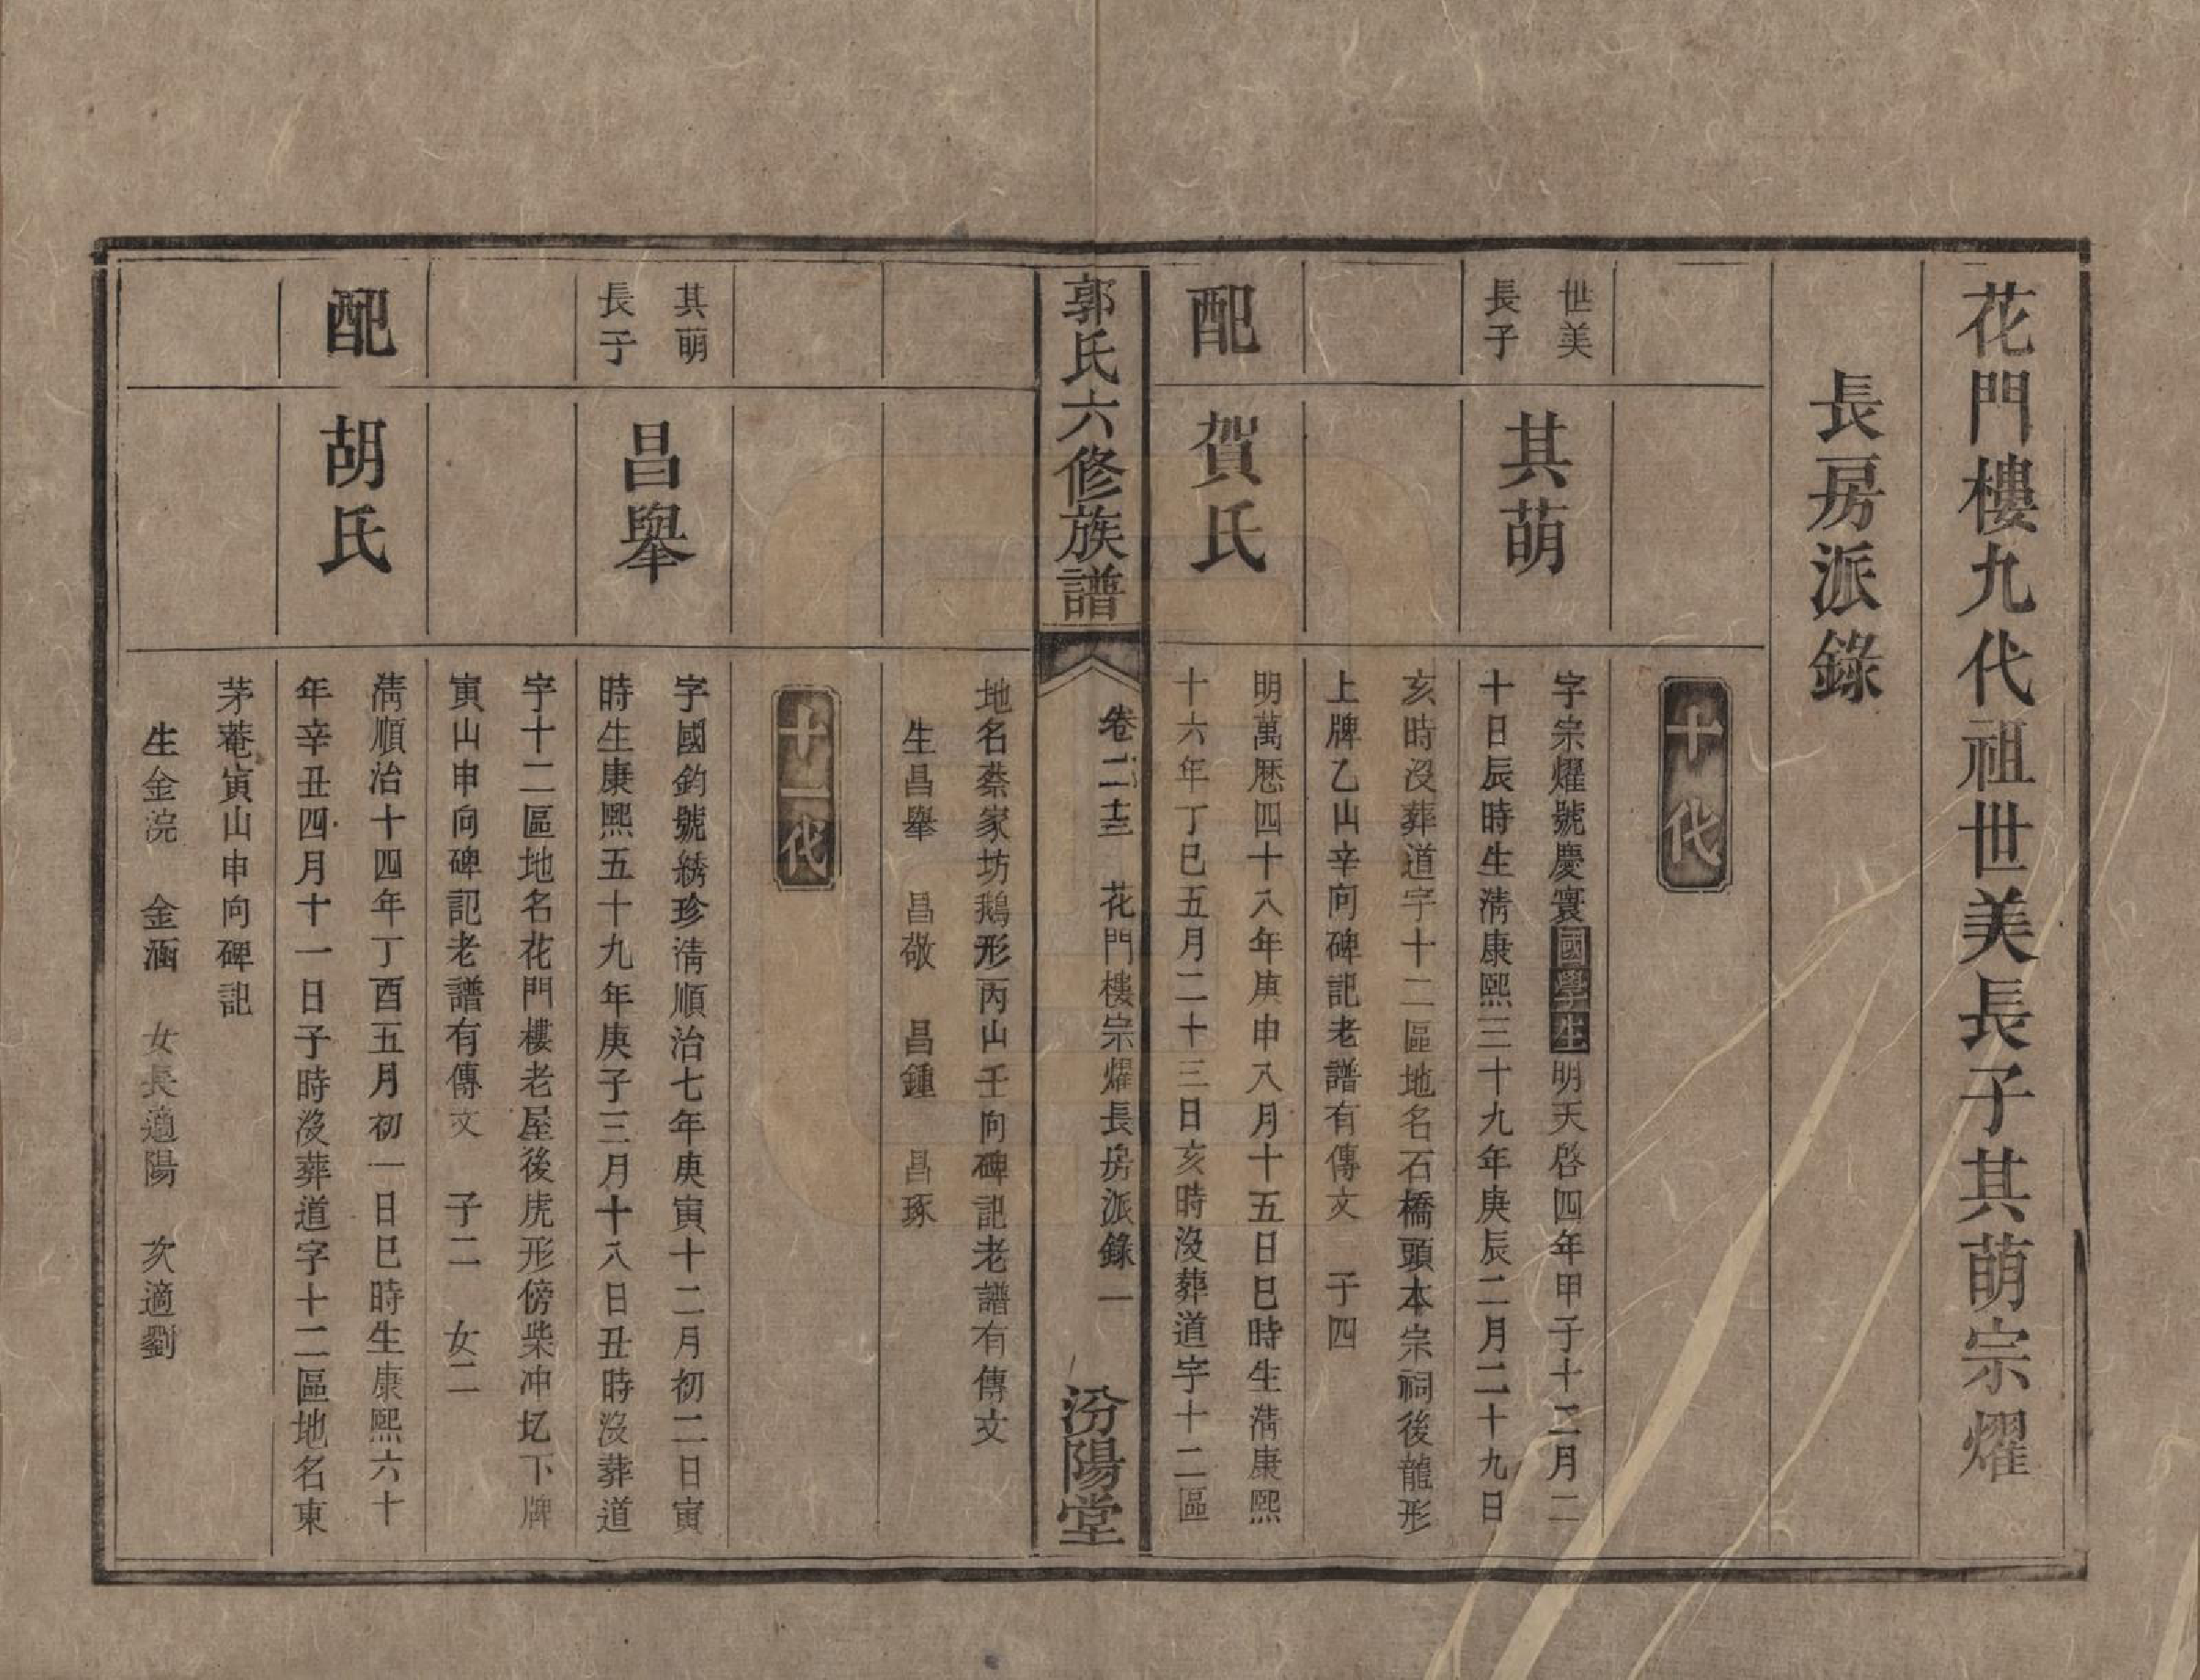 花門樓九代祖世美長子其萌宗燿
長房派錄
十代
世美
長子
其萌
字宗燿號慶寰國學生明天啓四年甲子十二月二
十日辰時生淸康熙三十九年庚辰二月二十九日
亥時没葬道字十二區地名石橋頭本宗祠後龍形
上牌乙山辛向碑記老譜有傳文 子四
配
賀氏
明萬厯四十八年庚申八月十五日巳時生淸康熙
十六年丁巳五月二十三日亥時沒葬道字十二區
郭氏六修族譜
卷二十三 花門樓宗燿長房派錄 一
汾陽堂
地名蔡家坊鵝形丙山壬向碑記老譜有傳文
生昌舉 昌敬 昌鍾 昌琢
十一代
其萌
長子
昌舉
字國鈞號綉珍淸順治七年庚寅十二月初二日寅
時生康熙五十九年庚子三月十八日丑時沒葬道
字十二區地名花門樓老屋後虎形傍柴冲圪下牌
寅山申向碑記老譜有傳文 子二 女二
配
胡氏
淸順治十四年丁酉五月初一日巳時生康熙六十
年辛丑四月十一日子時沒葬道字十二區地名東
茅菴寅山申向碑記
生金浣 金涵 女長適陽 次適劉